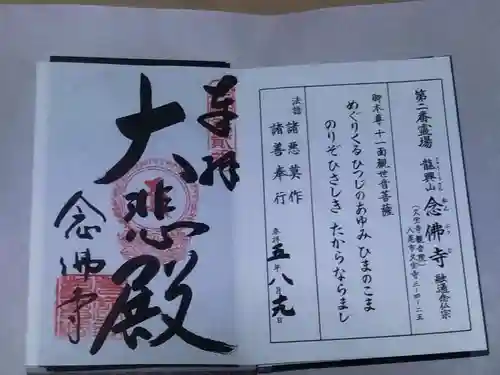 第二番霊場
龍興山 念佛寺 融通念仏宗
(久宝寺観音院)
八尾市久宝寺三-四-二五
御本尊 十一面観世音菩薩
めぐりくるひつじのあゆみ ひまのこま
のりぞひさしき たからならまし
法語 諸悪莫作
諸善奉行
奉拝 五年 八月 十九日
奉拝
大悲殿
念佛寺